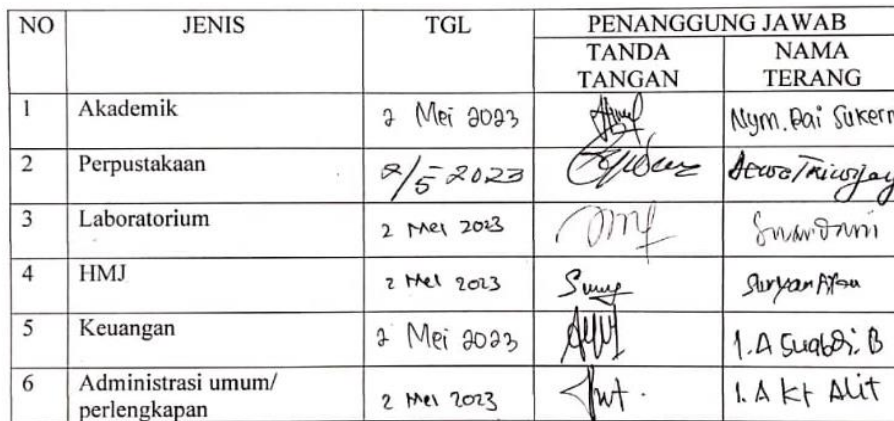 NO JENIS TGL PENANGGUNG JAWAB
TANDA TANGAN NAMA TERANG
1 Akademik 2 Mei 2023 Nym. Rai Sukern
2 Perpustakaan 2/5 2023
3 Laboratorium 2 Mei 2023
4 HMJ 2 Mei 2023
5 Keuangan 2 Mei 2023 I.A
6 Administrasi umum/
perlengkapan 2 Mei 2023 I.A Kt Alit